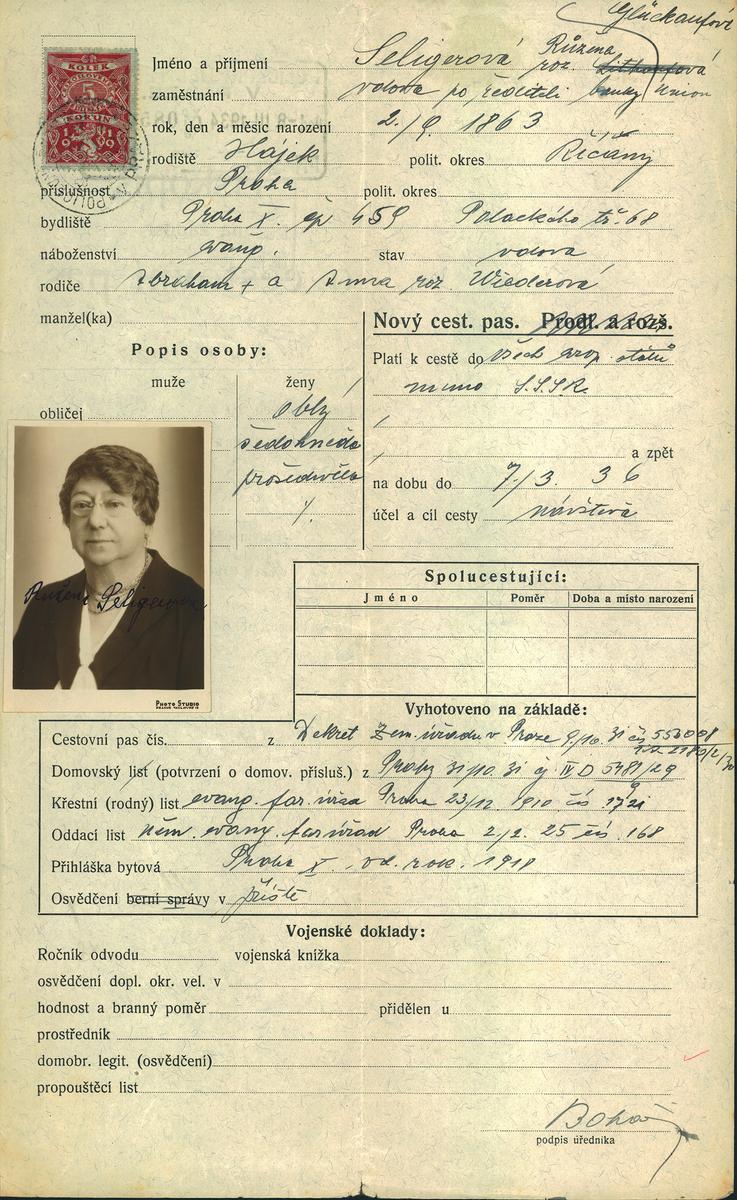 Glückaufová
KOLEK
5
KORUN
1919
Jméno a příjmení Seligerová Růžena roz.
zaměstnání vdova po řediteli banky Union
rok, den a měsíc narození 2./9. 1863
rodiště Hájek polit. okres Říčany
příslušnost Praha polit. okres
bydliště Praha X. čp 459 Palackého tř. 68
náboženství evang. stav vdova
rodiče Abraham + a Anna roz. Wiederová
manžel(ka)
Nový cest. pas. Prodl. a rozš.
Popis osoby:
muže ženy
Platí k cestě do všech evrop. států
mimo S.S.S.R.
obličej oblý
šedohnědé
prošedivělé
a zpět
na dobu do 7./3. 36
účel a cíl cesty návštěva
Růžena Seligerová
PHOTO STUDIO
Spolucestující:
Jméno Poměr Doba a místo narození
Vyhotoveno na základě:
Cestovní pas čís. z Dekret Zem. úřadu v Praze 9/10. 31 čís 553008
Domovský list (potvrzení o domov. přísluš.) z Prahy 31/10. 31 čj. IV D 5481/29
Křestní (rodný) list evang. far. úřad Praha 23/12. 1910 čís.
Oddací list něm. evang. far úřad Praha 2/2. 25 čís. 168
Přihláška bytová Praha X. od. rok. 1918
Osvědčení berní správy v příště
Vojenské doklady:
Ročník odvodu vojenská knížka
osvědčení dopl. okr. vel. v
hodnost a branný poměr přidělen u
prostředník
domobr. legit. (osvědčení)
propouštěcí list
podpis úředníka